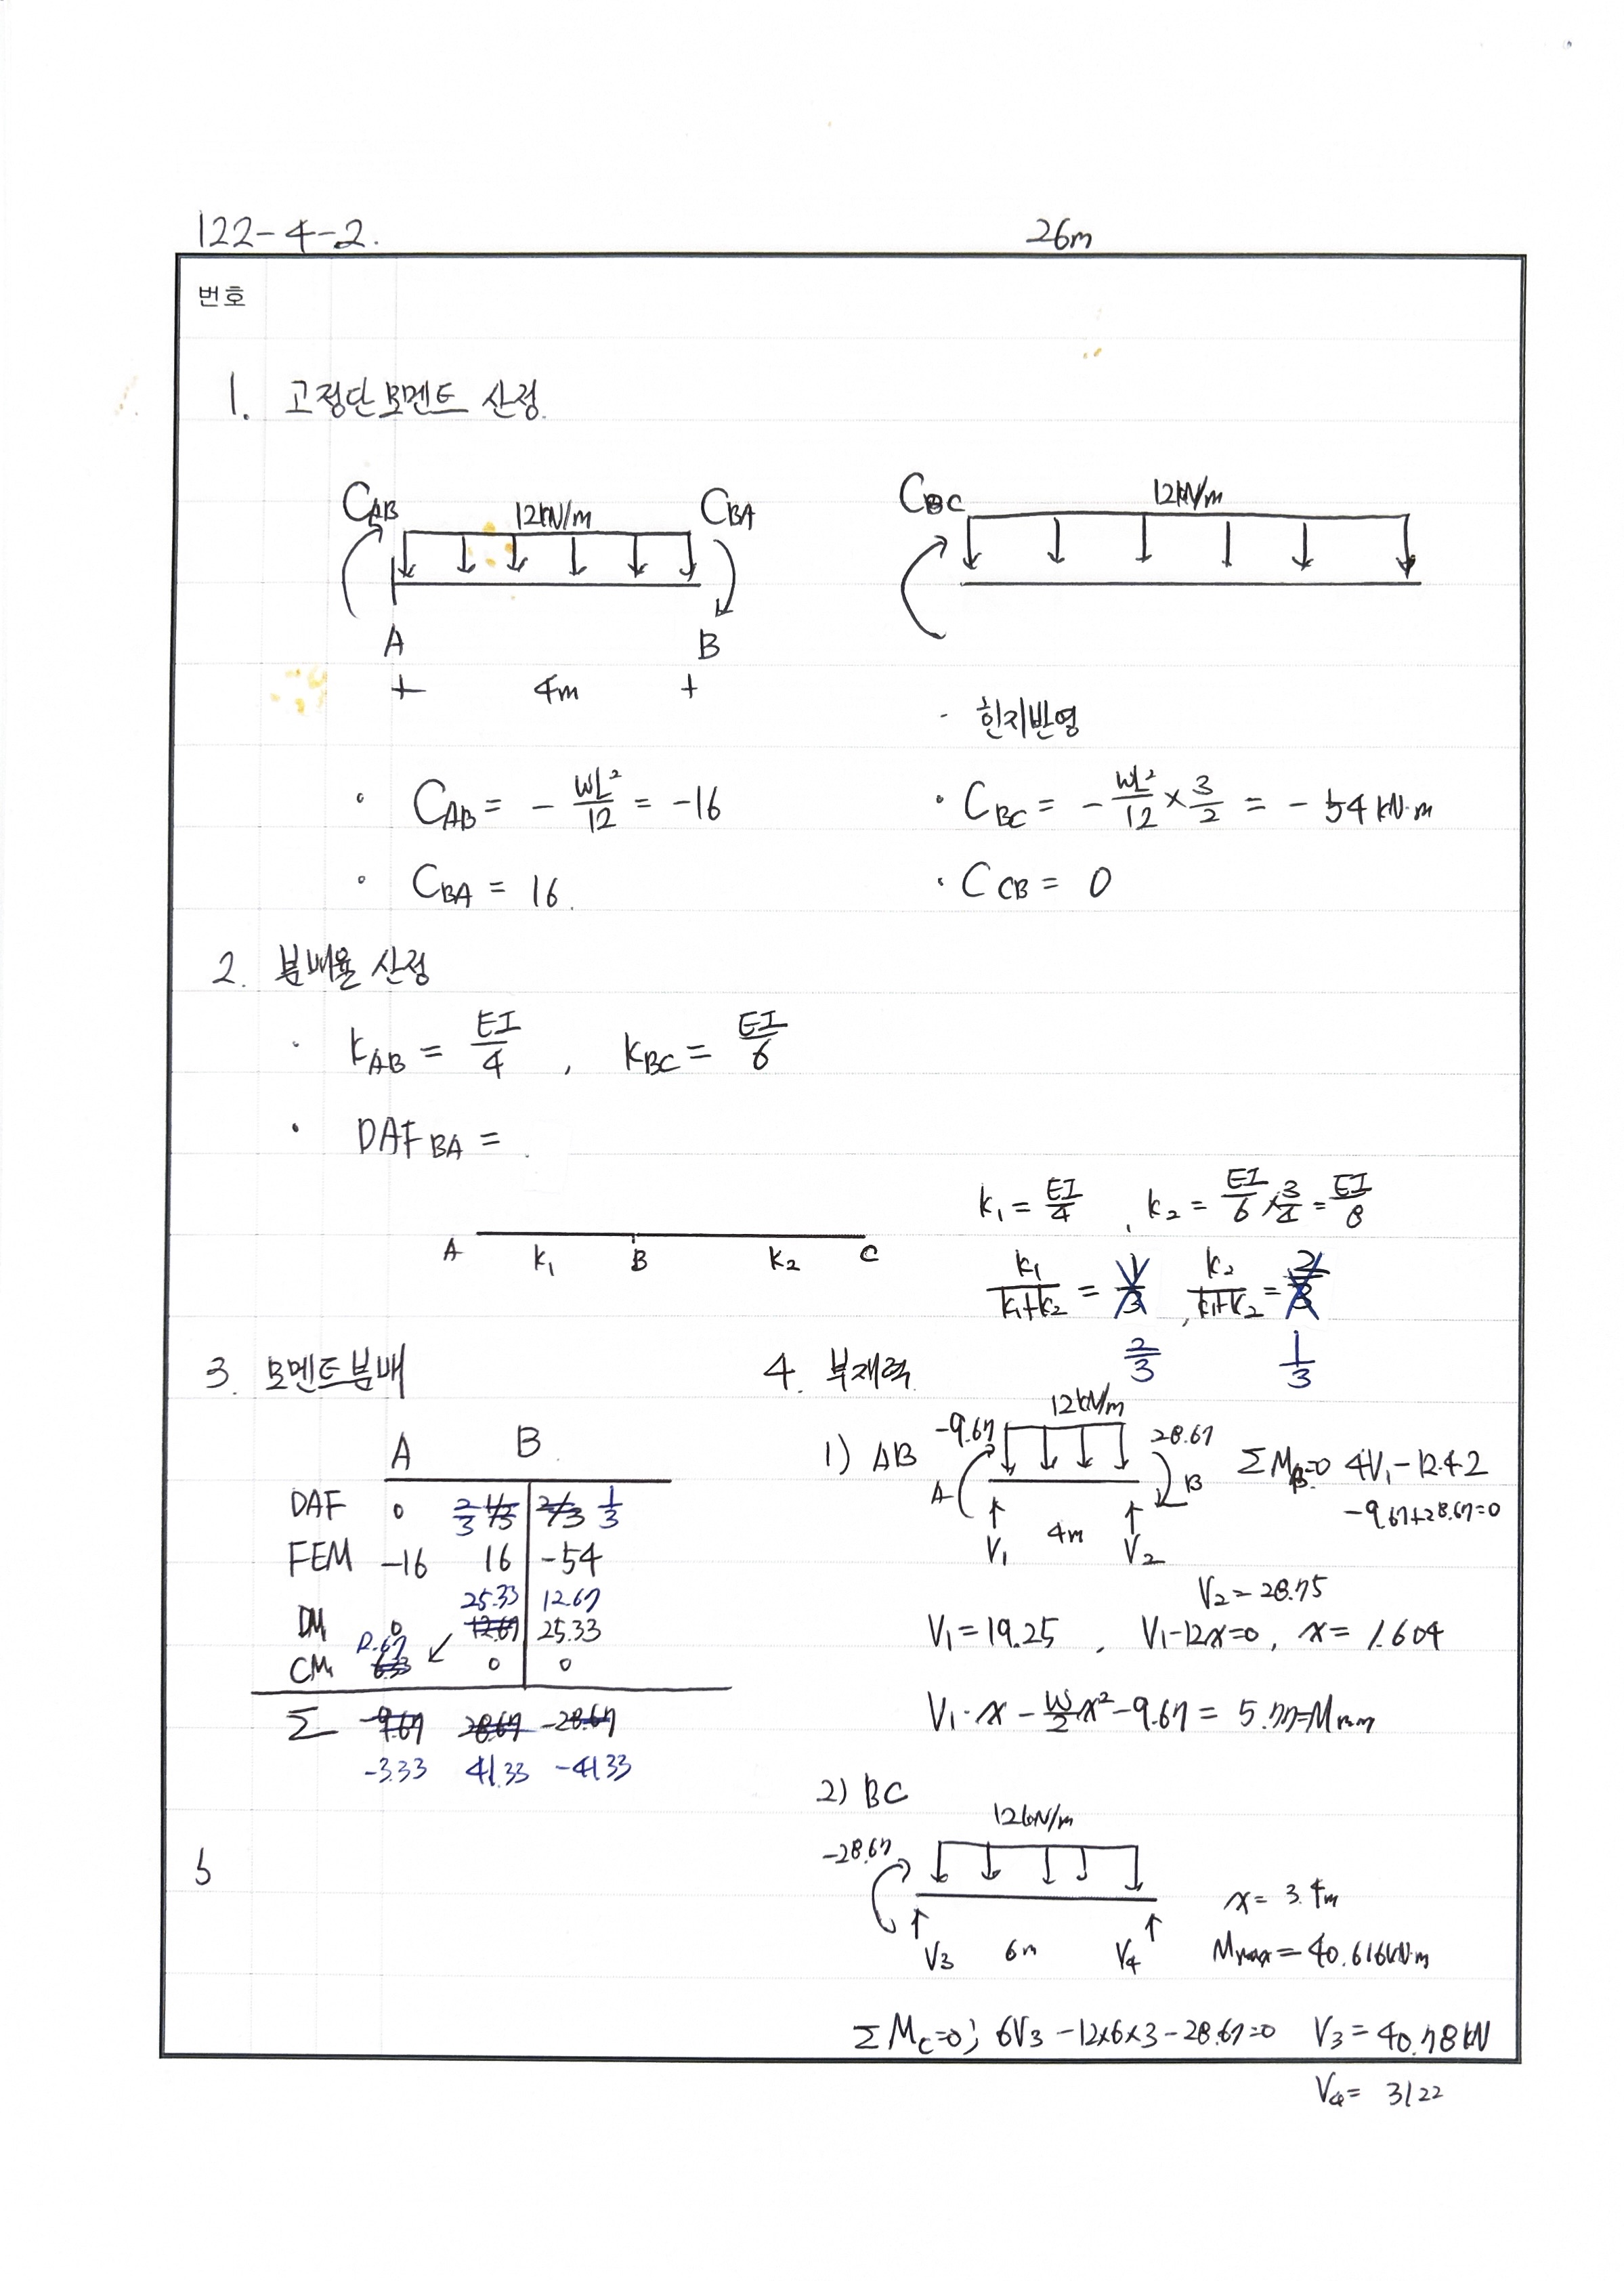 122-4-2.
26m
번호
1. 고정단모멘트 산정.
C_AB 12kN/m C_BA
A B
4m
C_BC 12kN/m
- 힌지반영
• C_AB = - wL²/12 = -16
• C_BC = - wL²/12 × 3/2 = - 54 kN·m
• C_BA = 16.
• C_CB = 0
2. 분배율 산정
• k_AB = EI/4 , k_BC = EI/6
• DAF_BA = .
A k₁ B k₂ C
k₁ = EI/4 , k₂ = EI/6 × 3/4 = EI/8
k₁/(k₁+k₂) = 1/3 , k₂/(k₁+k₂) = 2/3
2/3 1/3
3. 모멘트분배
A B
DAF 0 2/3 1/3 2/3 1/3
FEM -16 16 -54
25.33 12.67
DM 0 12.67 25.33
12.67
CM 6.33 ↙ 0 0
Σ -9.67 28.67 -28.67
-3.33 41.33 -41.33
4. 부재력
1) AB -9.67 12kN/m 28.67
A B
V₁ 4m V₂
ΣM_B=0 4V₁-12·4·2
-9.67+28.67=0
V₂ = 28.75
V₁ = 19.25 , V₁-12x=0, x = 1.604
V₁·x - w/2 x² - 9.67 = 5.77=
2) BC
12kN/m
-28.67
V₃ 6m V₄
x = 3.4m
Mmax = 40.616kN·m
ΣM_C=0; 6V₃-12×6×3-28.67=0 V₃ = 40.78kN
V₄ = 31.22
5